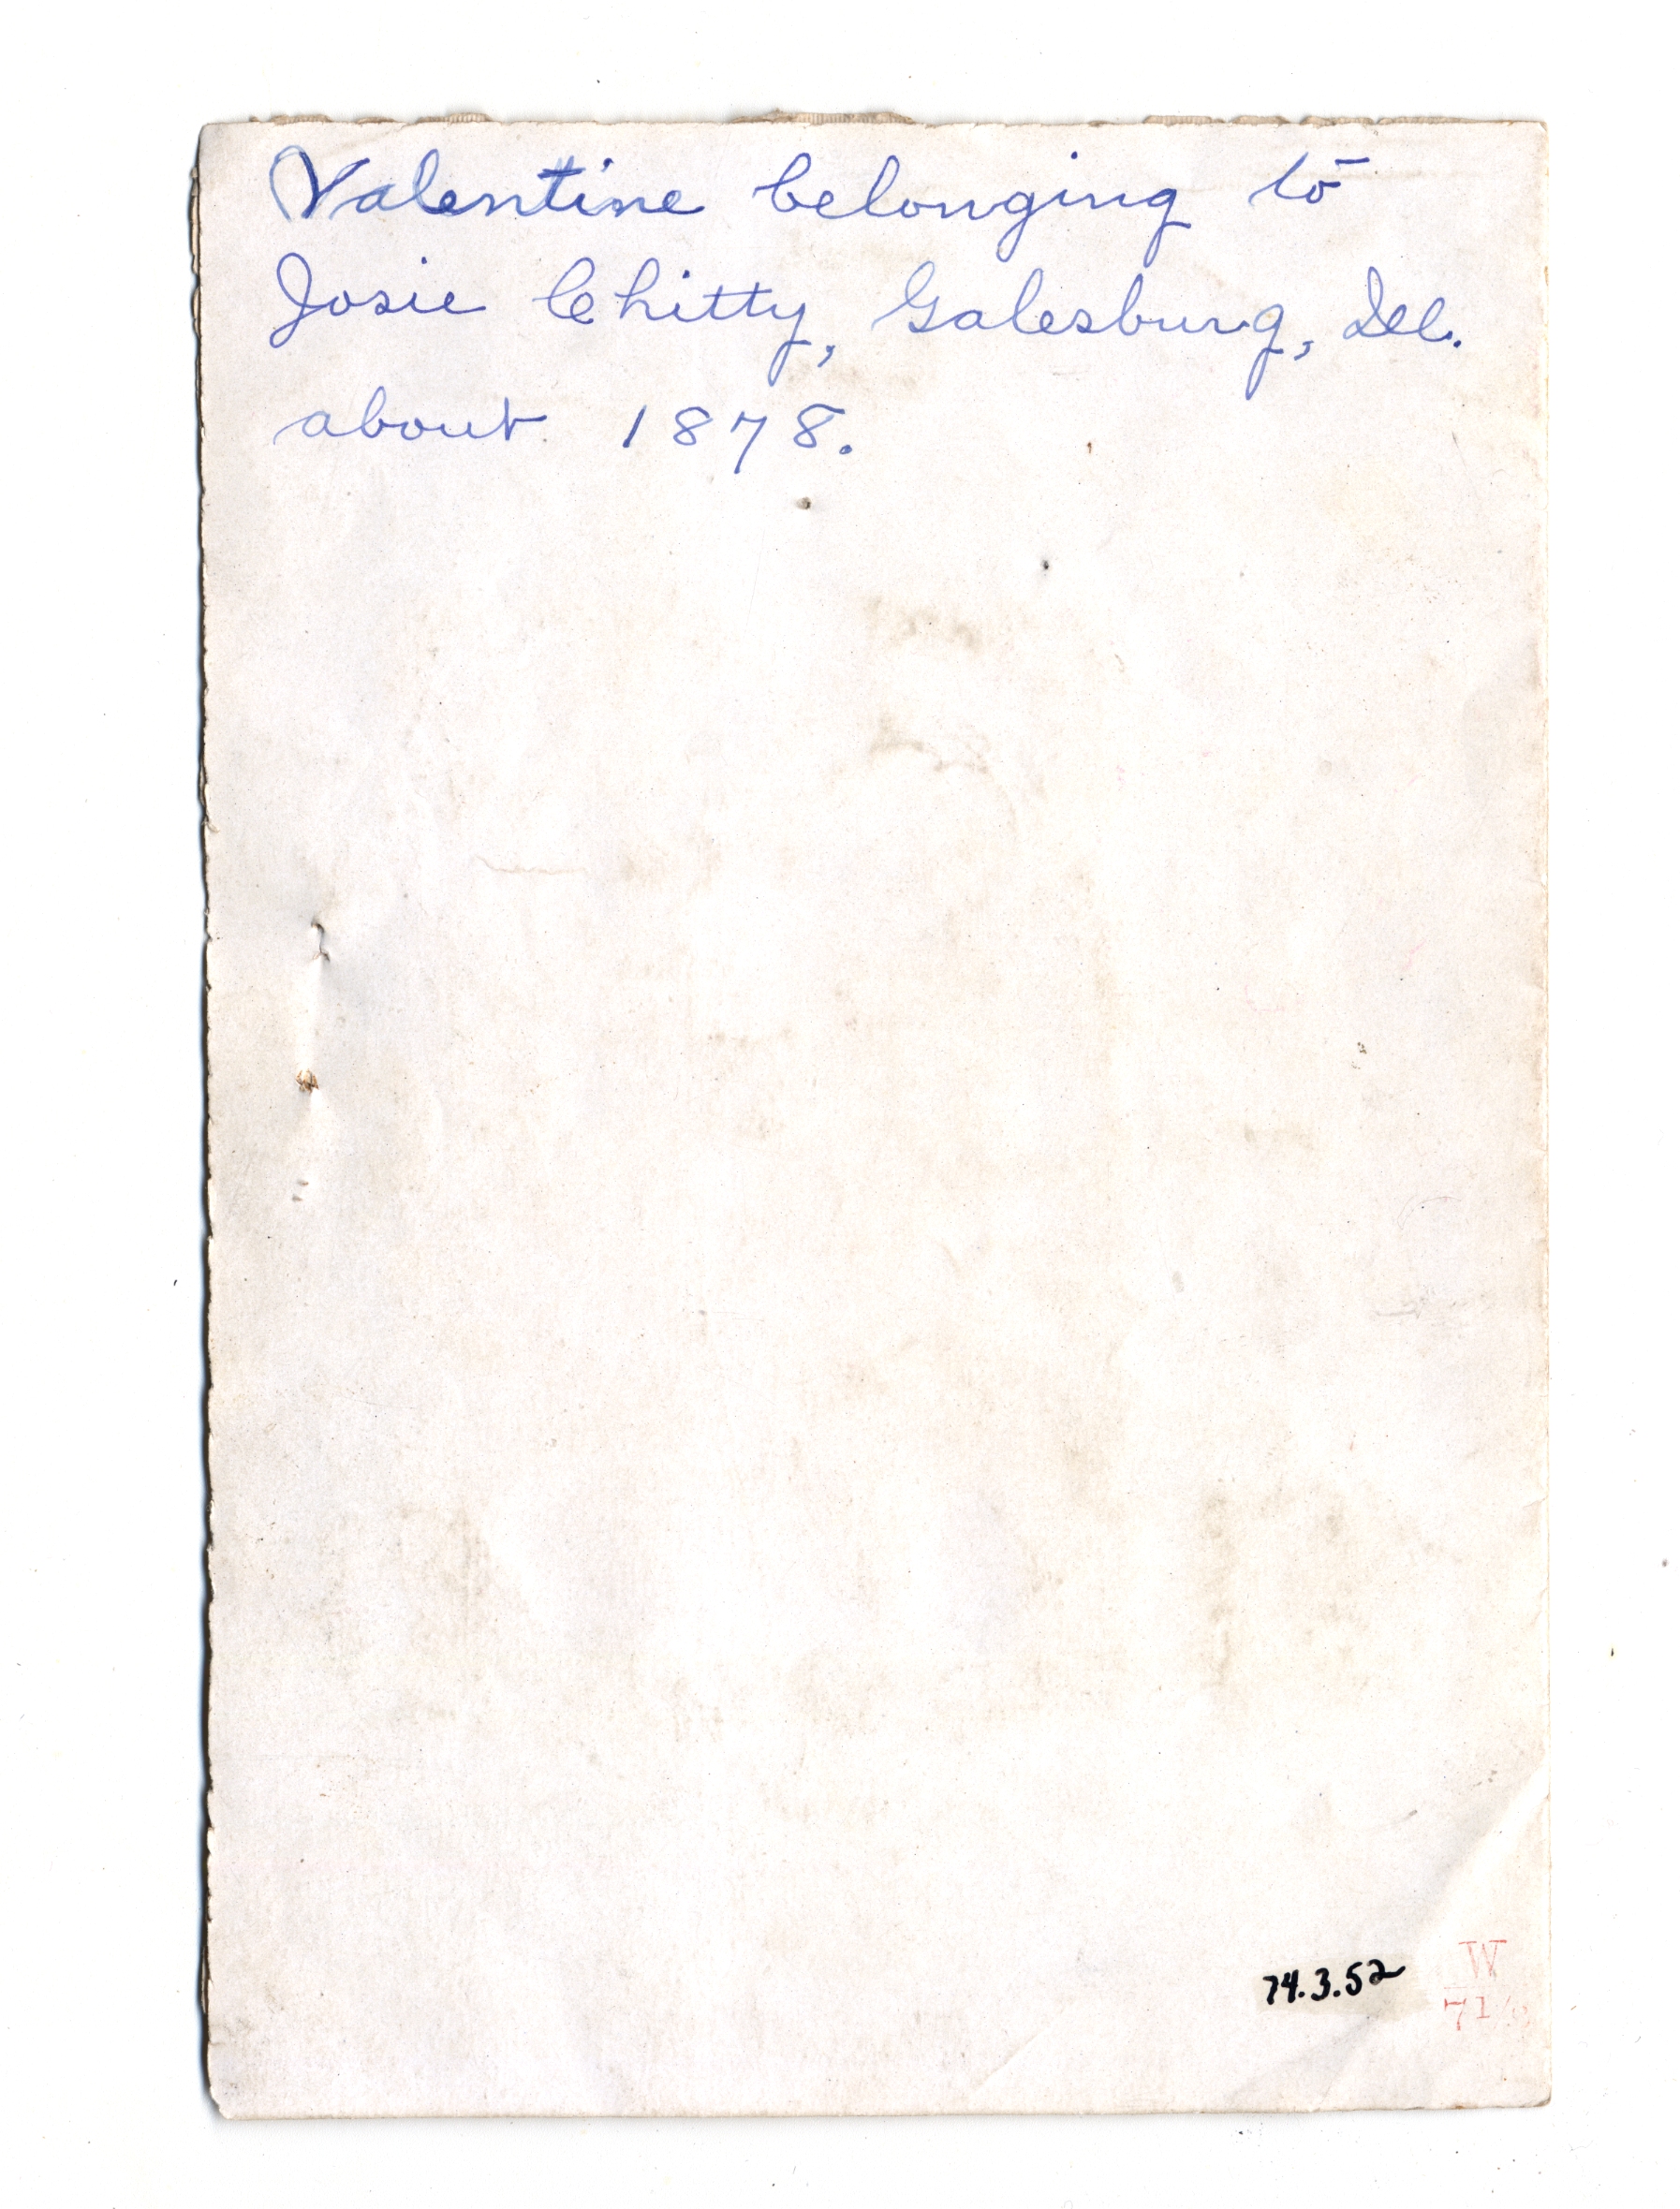 Valentine belonging to
Josie Chitty, Galesburg, Ill.
about 1878.
74.3.52
W